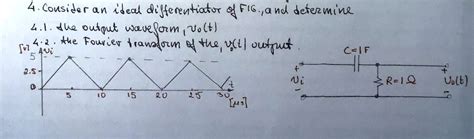 4. Consider an ideal differentiator of FIG., and determine
4.1. the output waveform, vo(t)
4.2. the Fourier transform of the, vo(t) output.
[V] Vi
5
2.5
0
5 10 15 20 25 30 t
[μs]
C=1F
+ +
Vi R=1Ω Vo(t)
- -